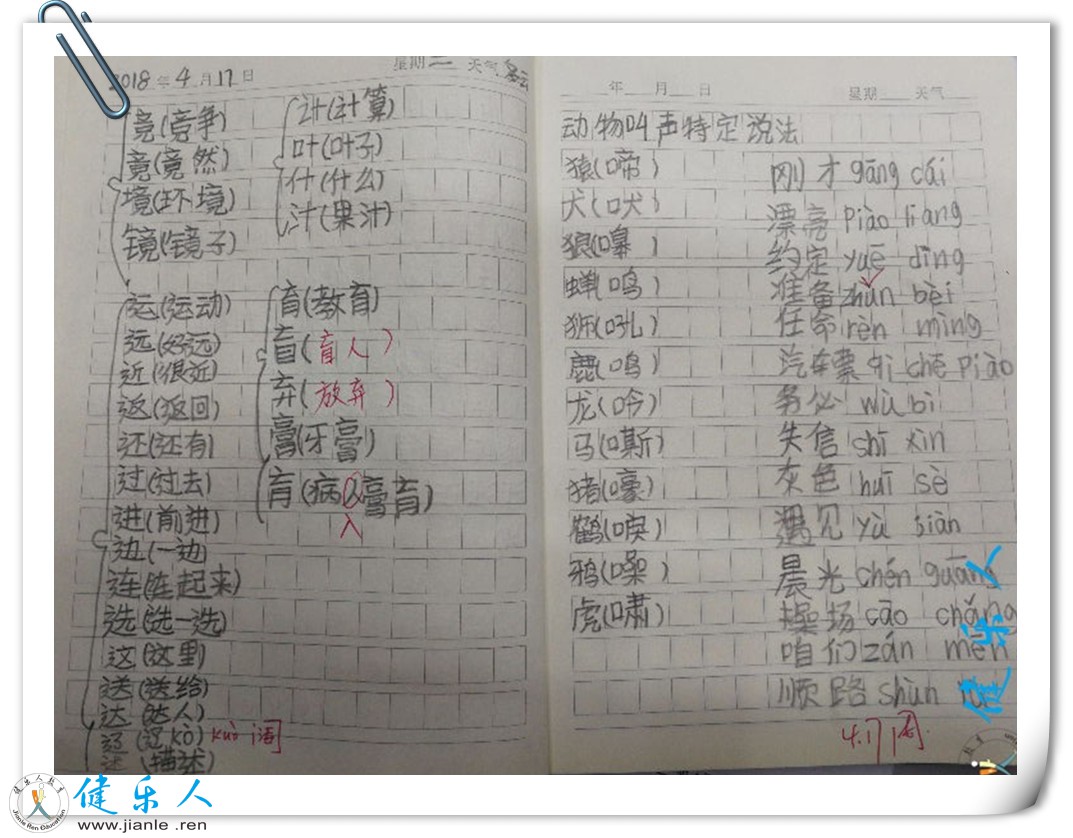 2018年4月17日 星期二 天气多云
竞(竞争)
竟(竟然)
境(环境)
镜(镜子)
计(计算)
叶(叶子)
什(什么)
汁(果汁)
运(运动)
远(好远)
近(很近)
返(返回)
还(还有)
过(过去)
进(前进)
边(一边)
连(连起来)
选(选一选)
这(这里)
送(送给)
达(达人)
辽(辽kò) kuò
述(描述)
育(教育)
盲(盲人)
弃(放弃)
膏(牙膏)
肓(病入膏肓)
入
年 月 日 星期 天气
动物叫声特定说法
猿(啼)
犬(吠)
狼(嗥)
蝉(鸣)
狮(吼)
鹿(鸣)
龙(吟)
马(嘶)
猪(嚎)
鹤(唳)
鸦(噪)
虎(啸)
刚才 gāng cái
漂亮 Piào liang
约定 yuē dìng
准备 zhǔn bèi
任命 rèn mìng
汽车票 qì chē Piào
务必 wù bì
失信 shī xìn
灰色 huī sè
遇见 yù jiàn
晨光 chén guāng
操场 cāo chǎng
咱们 zán men
顺路 shùn
4.17 阅
健乐人
健乐人
www.jianle .ren
健乐人教育
Jianle Ren Education